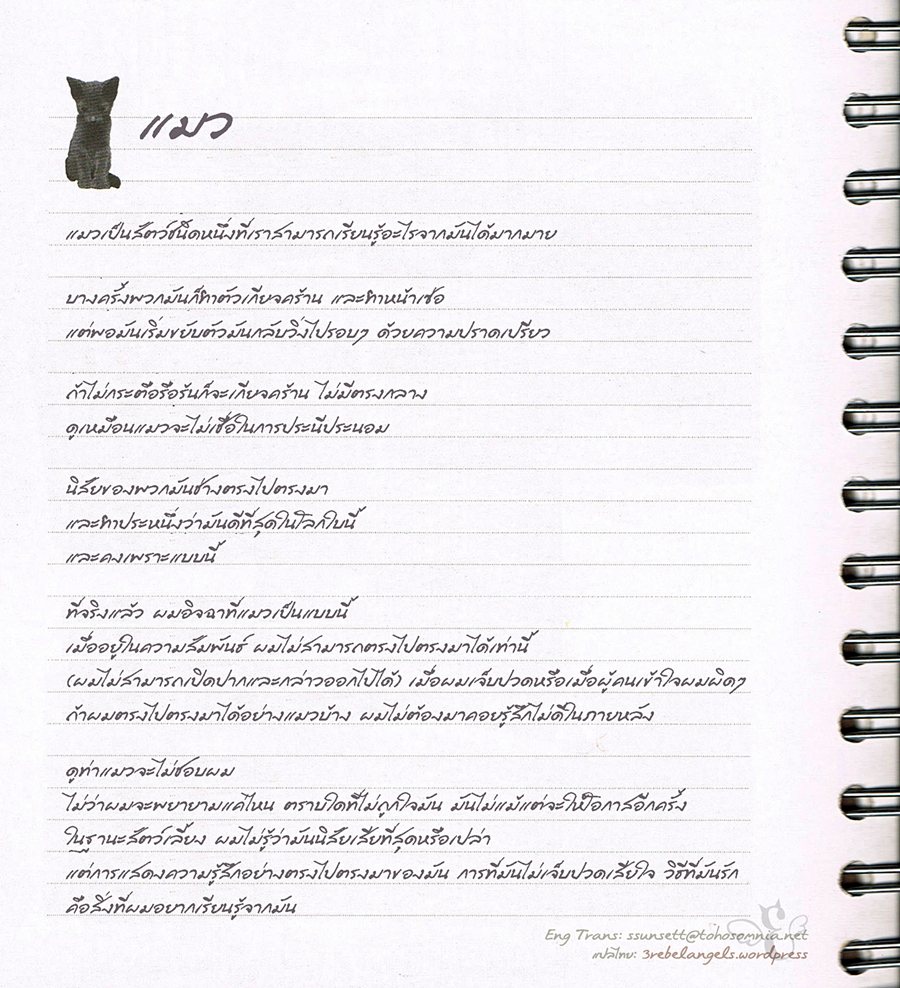 แมว
แมวเป็นสัตว์ชนิดหนึ่งที่เราสามารถเรียนรู้อะไรจากมันได้มากมาย
บางครั้งพวกมันก็ทำตัวเกียจคร้าน และทำหน้าเซ่อ
แต่พอมันเริ่มขยับตัวมันกลับวิ่งไปรอบๆ ด้วยความปราดเปรียว
ถ้าไม่กระตือรือร้นก็จะเกียจคร้าน ไม่มีตรงกลาง
ดูเหมือนแมวจะไม่เชื่อในการประนีประนอม
นิสัยของพวกมันช่างตรงไปตรงมา
และทำประหนึ่งว่ามันดีที่สุดในโลกใบนี้
และคงเพราะแบบนี้
ที่จริงแล้ว ผมอิจฉาที่แมวเป็นแบบนี้
เมื่ออยู่ในความสัมพันธ์ ผมไม่สามารถตรงไปตรงมาได้เท่านี้
(ผมไม่สามารถเปิดปากและกล่าวออกไปได้) เมื่อผมเจ็บปวดหรือเมื่อผู้คนเข้าใจผมผิดๆ
ถ้าผมตรงไปตรงมาได้อย่างแมวบ้าง ผมไม่ต้องมาคอยรู้สึกไม่ดีในภายหลัง
ดูท่าแมวจะไม่ชอบผม
ไม่ว่าผมจะพยายามแค่ไหน ตราบใดที่ไม่ถูกใจมัน มันไม่แม้แต่จะให้โอกาสอีกครั้ง
ในฐานะสัตว์เลี้ยง ผมไม่รู้ว่ามันนิสัยเสียที่สุดหรือเปล่า
แต่การแสดงความรู้สึกอย่างตรงไปตรงมาของมัน การที่มันไม่เจ็บปวดเสียใจ วิธีที่มันรัก
คือสิ่งที่ผมอยากเรียนรู้จากมัน
Eng Trans: ssunsett@tohosomnia.net
แปลไทย: 3rebelangels.wordpress